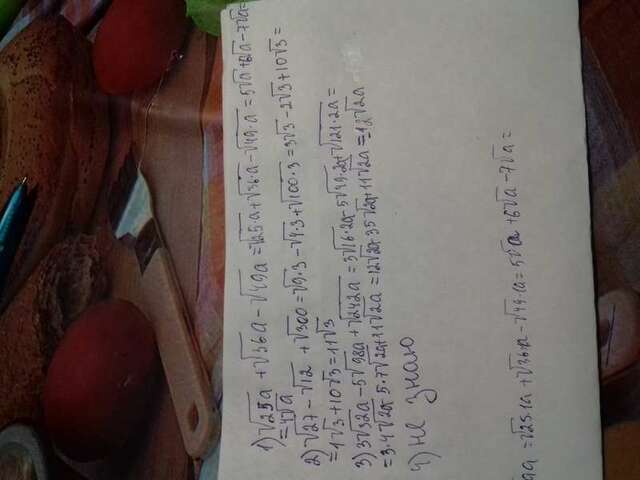 1) √25a + √36a - √49a = √25·a + √36·a - √49·a = 5√a + 6√a - 7√a =
= 4√a
2) √27 - √12 + √300 = √9·3 - √4·3 + √100·3 = 3√3 - 2√3 + 10√3 =
= 1√3 + 10√3 = 11√3
3) 3√32a - 5√98a + √242a = 3√16·2a - 5√49·2a + √121·2a =
= 3·4√2a - 5·7√2a + 11√2a = 12√2a - 35√2a + 11√2a = -12√2a
4) не знаю
9a = √25·a + √36·a - √49·a = 5√a + 6√a - 7√a =